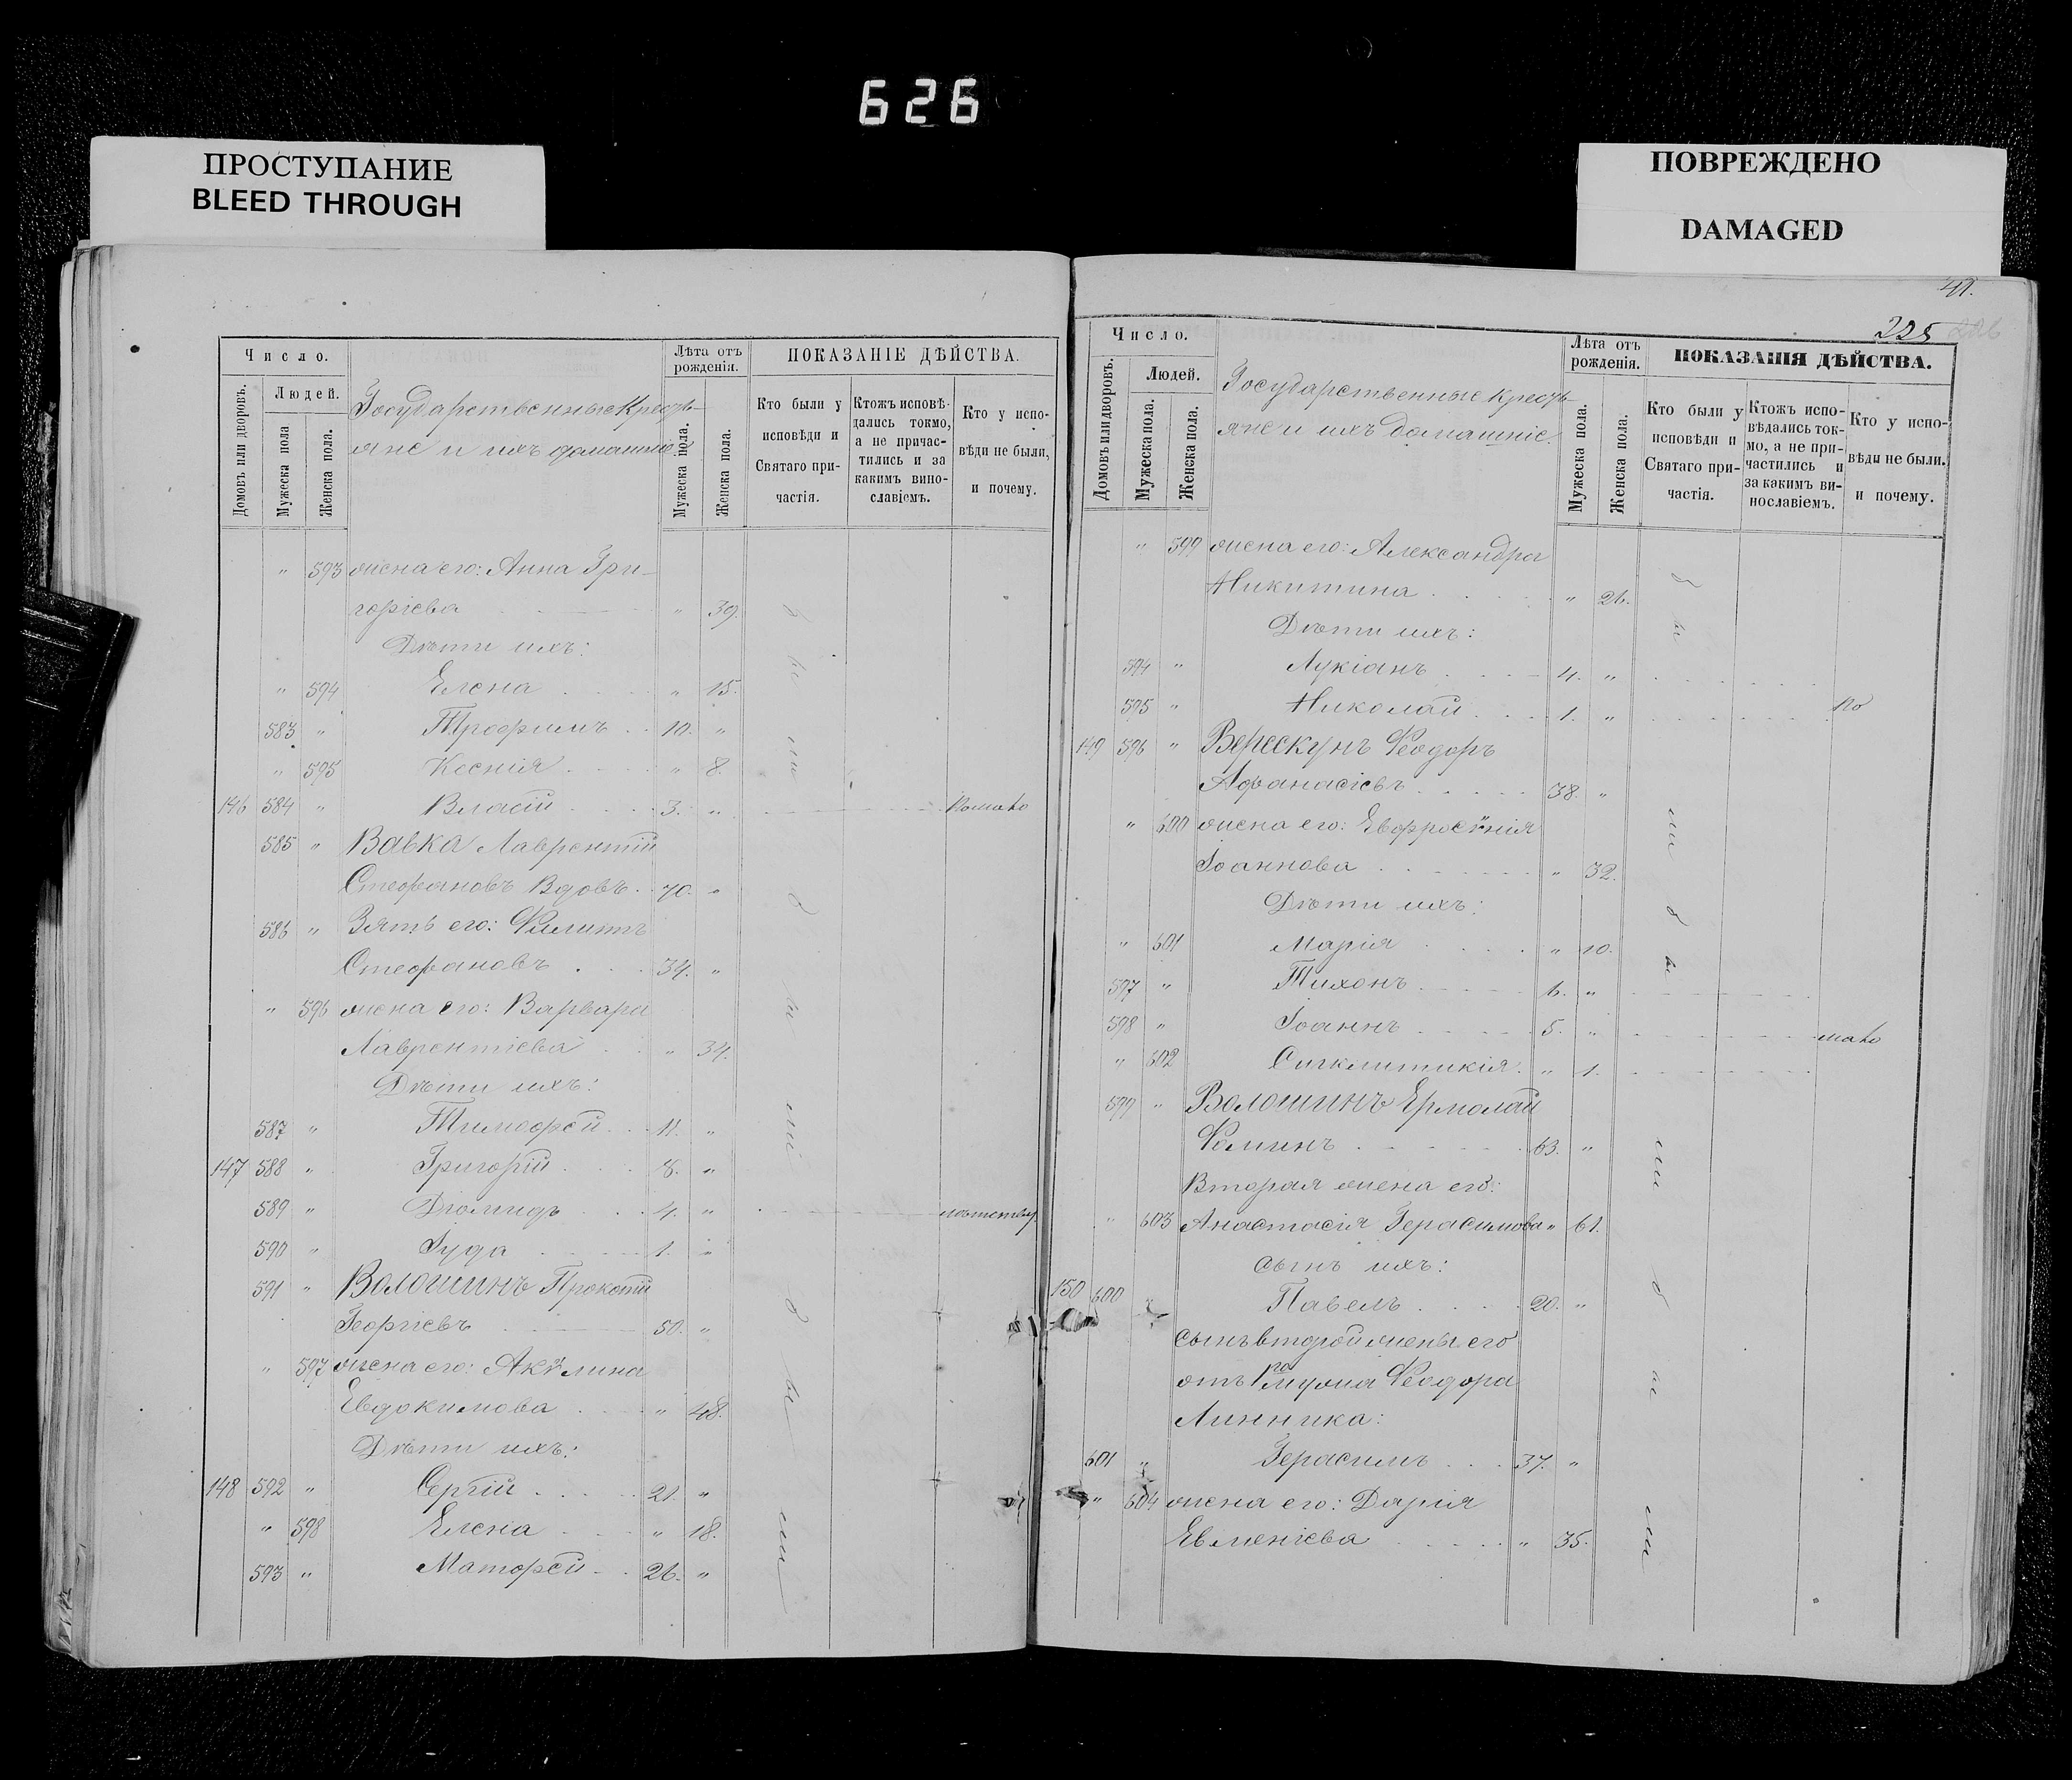 626
ПРОСТУПАНИЕ
BLEED THROUGH
ПОВРЕЖДЕНО
DAMAGED
Число.
Домовъ или дворовъ.
Людей.
Мужеска пола
Женска пола.
Государственные Кресть-
яне и ихъ домашніе.
Лѣта отъ рожденія.
Мужеска пола.
Женска пола.
ПОКАЗАНІЕ ДѢЙСТВА.
Кто были у исповѣди и Святаго при-частія.
Ктожъ исповѣ-дались токмо, а не причас-тились и за какимъ вино-славіемъ.
Кто у испо-вѣди не были, и почему.
" 593 жена его: Анна Гри-
горіева " 39.
Дѣти ихъ:
" 594 Елена " 15.
583 " Трофимъ 10. "
" 595 Ксенія " 8.
146 584 " Власій 3. "
585 " Вавка Лаврентій
Стефановъ Вдовъ 70. "
586 " Зять его: Филиппъ
Стефановъ 34. "
" 596 жена его: Варвара
Лаврентіева " 34.
Дѣти ихъ:
587 " Тимофей 11. "
147 588 " Григорій 8. "
589 " Діомидъ 4. "
590 " Іуда 1. "
591 " Волошинъ Прокопій
Георгіевъ 50. "
" 597 жена его: Акѵлина
Евдокимова " 48.
Дѣти ихъ:
148 592 " Сергій 21. "
" 598 Елена " 18.
593 " Матфей 26. "
были
были
были
41.
225
Число.
Домовъ или дворовъ.
Людей.
Мужеска пола.
Женска пола.
Государственные Кресть-
яне и ихъ домашніе.
Лѣта отъ рожденія.
Мужеска пола.
Женска пола.
ПОКАЗАНІЯ ДѢЙСТВА.
Кто были у исповѣди и Святаго при-частія.
Ктожъ испо-вѣдались ток-мо, а не при-частились и за какимъ ви-нославіемъ.
Кто у испо-вѣди не были. и почему.
" 599 жена его: Александра
Никитина " 26.
Дѣти ихъ:
594 " Лукіанъ 4. "
595 " Николай 1. " по
149 596 " Верескунъ Ѳеодоръ
Афанасіевъ 38. "
" 600 жена его: Евфросѵнія
Іоаннова " 32.
Дѣти ихъ:
" 601 Марія " 10.
597 " Тихонъ 6. "
598 " Іоаннъ 5. "
" 602 Сигклитикія " 1.
599 " Волошинъ Ермолай
Ѳоминъ 63. "
Вторая жена его:
" 603 Анастасія Герасимова " 61.
сынъ ихъ:
150 600 " Павелъ 20. "
сынъ второй жены его
отъ 1го мужа Ѳеодора
Линника:
601 " Герасимъ 37. "
" 604 жена его: Дарія
Евменіева " 35.
были
были
были